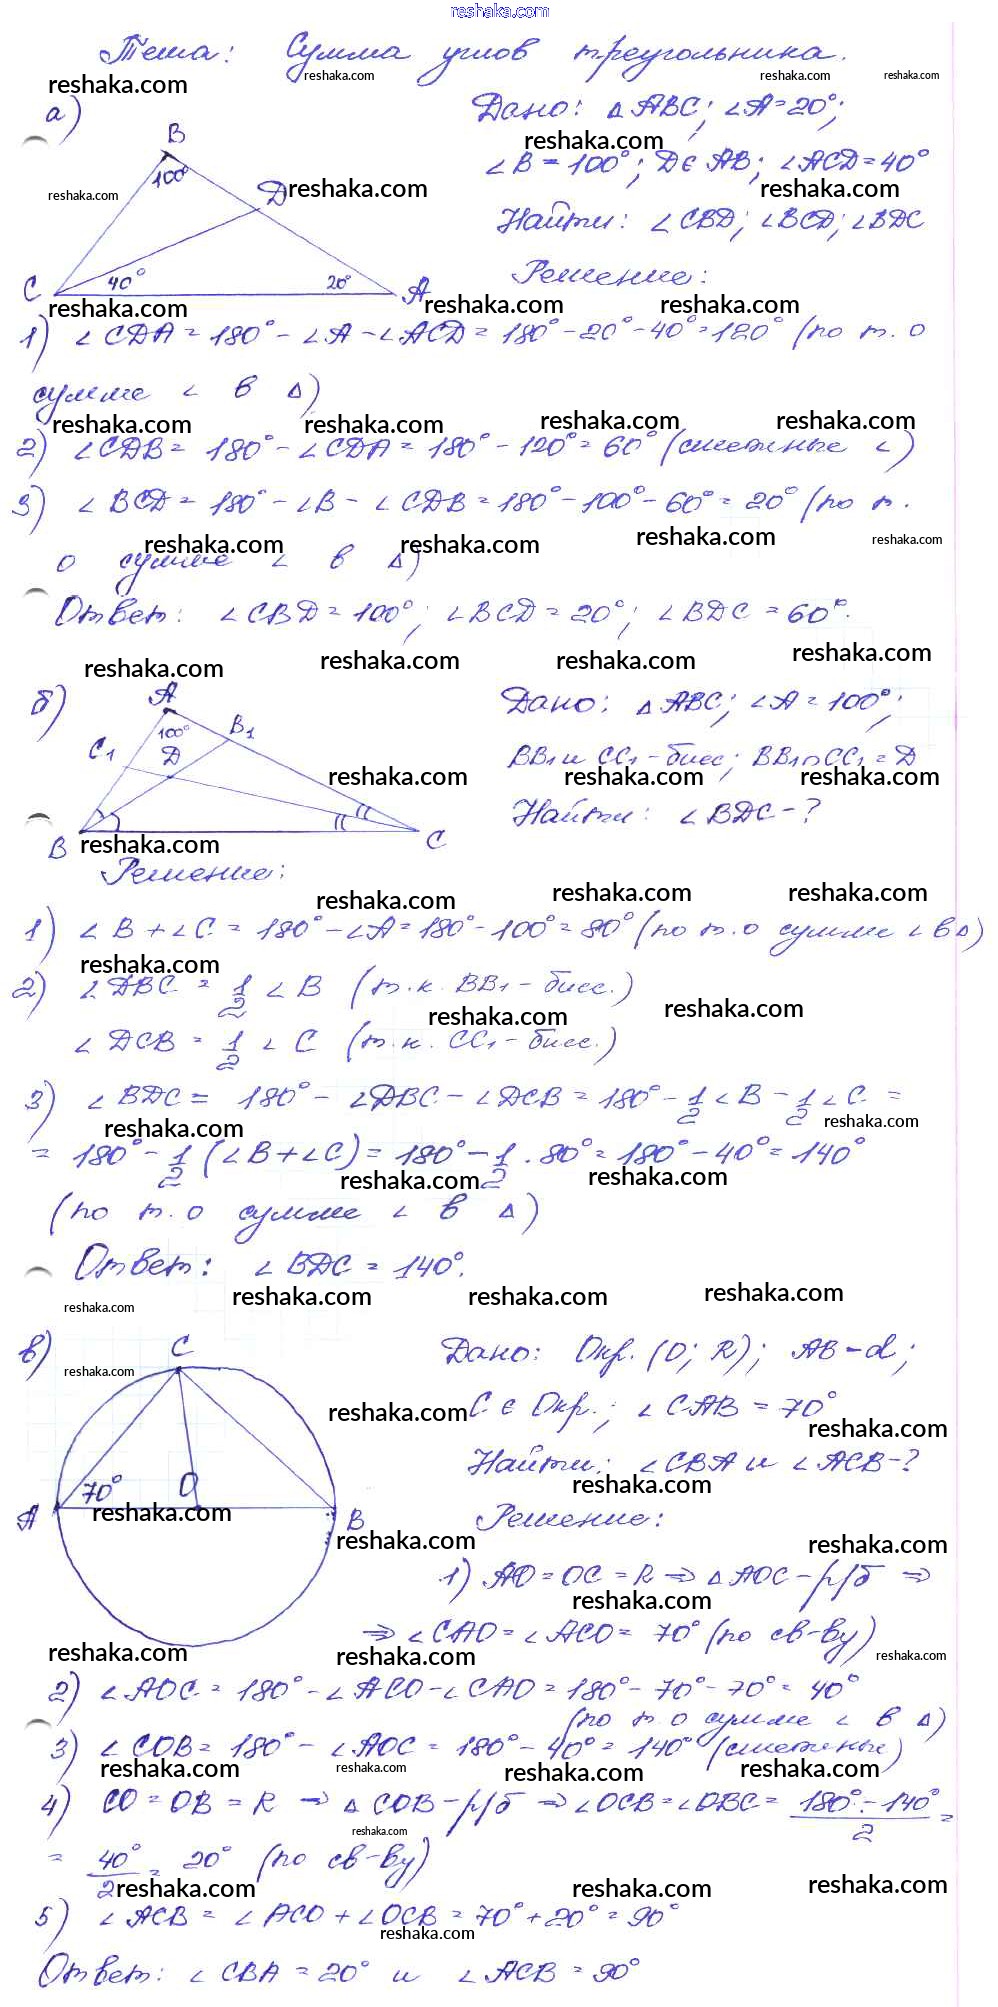 reshaka.com
Тема: Сумма углов треугольника.
а)
B
100°
D
C
40°
20°
A
Дано: △ABC; ∠A=20°;
∠B=100°; D∈AB; ∠ACD=40°
Найти: ∠CBD; ∠BCD; ∠BDC
Решение:
1) ∠CDA = 180° - ∠A - ∠ACD = 180° - 20° - 40° = 120° (по т. о
сумме ∠ в △)
2) ∠CDB = 180° - ∠CDA = 180° - 120° = 60° (смежные ∠)
3) ∠BCD = 180° - ∠B - ∠CDB = 180° - 100° - 60° = 20° (по т.
о сумме ∠ в △)
Ответ: ∠CBD = 100°; ∠BCD = 20°; ∠BDC = 60°.
б)
A
100°
B₁
C₁
D
B
C
Дано: △ABC; ∠A = 100°;
BB₁ и CC₁ - бисс; BB₁∩CC₁ = D
Найти: ∠BDC - ?
Решение:
1) ∠B + ∠C = 180° - ∠A = 180° - 100° = 80° (по т. о сумме ∠ в △)
2) ∠DBC = 1/2 ∠B (т.к. BB₁ - бисс.)
∠DCB = 1/2 ∠C (т.к. CC₁ - бисс.)
3) ∠BDC = 180° - ∠DBC - ∠DCB = 180° - 1/2 ∠B - 1/2 ∠C =
= 180° - 1/2 (∠B + ∠C) = 180° - 1/2 · 80° = 180° - 40° = 140°
(по т. о сумме ∠ в △)
Ответ: ∠BDC = 140°.
в)
C
70°
O
A
B
Дано: Окр. (O; R); AB - d;
C ∈ Окр.; ∠CAB = 70°
Найти: ∠CBA и ∠ACB - ?
Решение:
1) AO = OC = R ⇒ △AOC - р/б ⇒
⇒ ∠CAO = ∠ACO = 70° (по св-ву)
2) ∠AOC = 180° - ∠ACO - ∠CAO = 180° - 70° - 70° = 40°
(по т. о сумме ∠ в △)
3) ∠COB = 180° - ∠AOC = 180° - 40° = 140° (смежные)
4) CO = OB = R ⇒ △COB - р/б ⇒ ∠OCB = ∠OBC = (180° - 140°)/2 =
= 40°/2 = 20° (по св-ву)
5) ∠ACB = ∠ACO + ∠OCB = 70° + 20° = 90°
Ответ: ∠CBA = 20° и ∠ACB = 90°